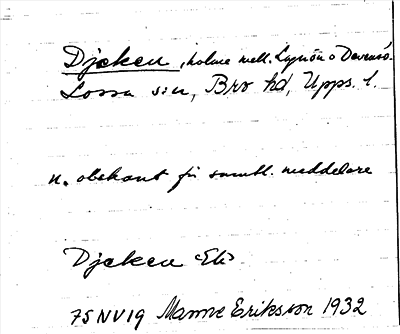 Djeken, holme mell. Lagnön o Davensö.
Lossa sn, Bro hd, Upps. l.
n. obekant för samtl. meddelare
Djeken Ek
75NV19 Manne Eriksson 1932